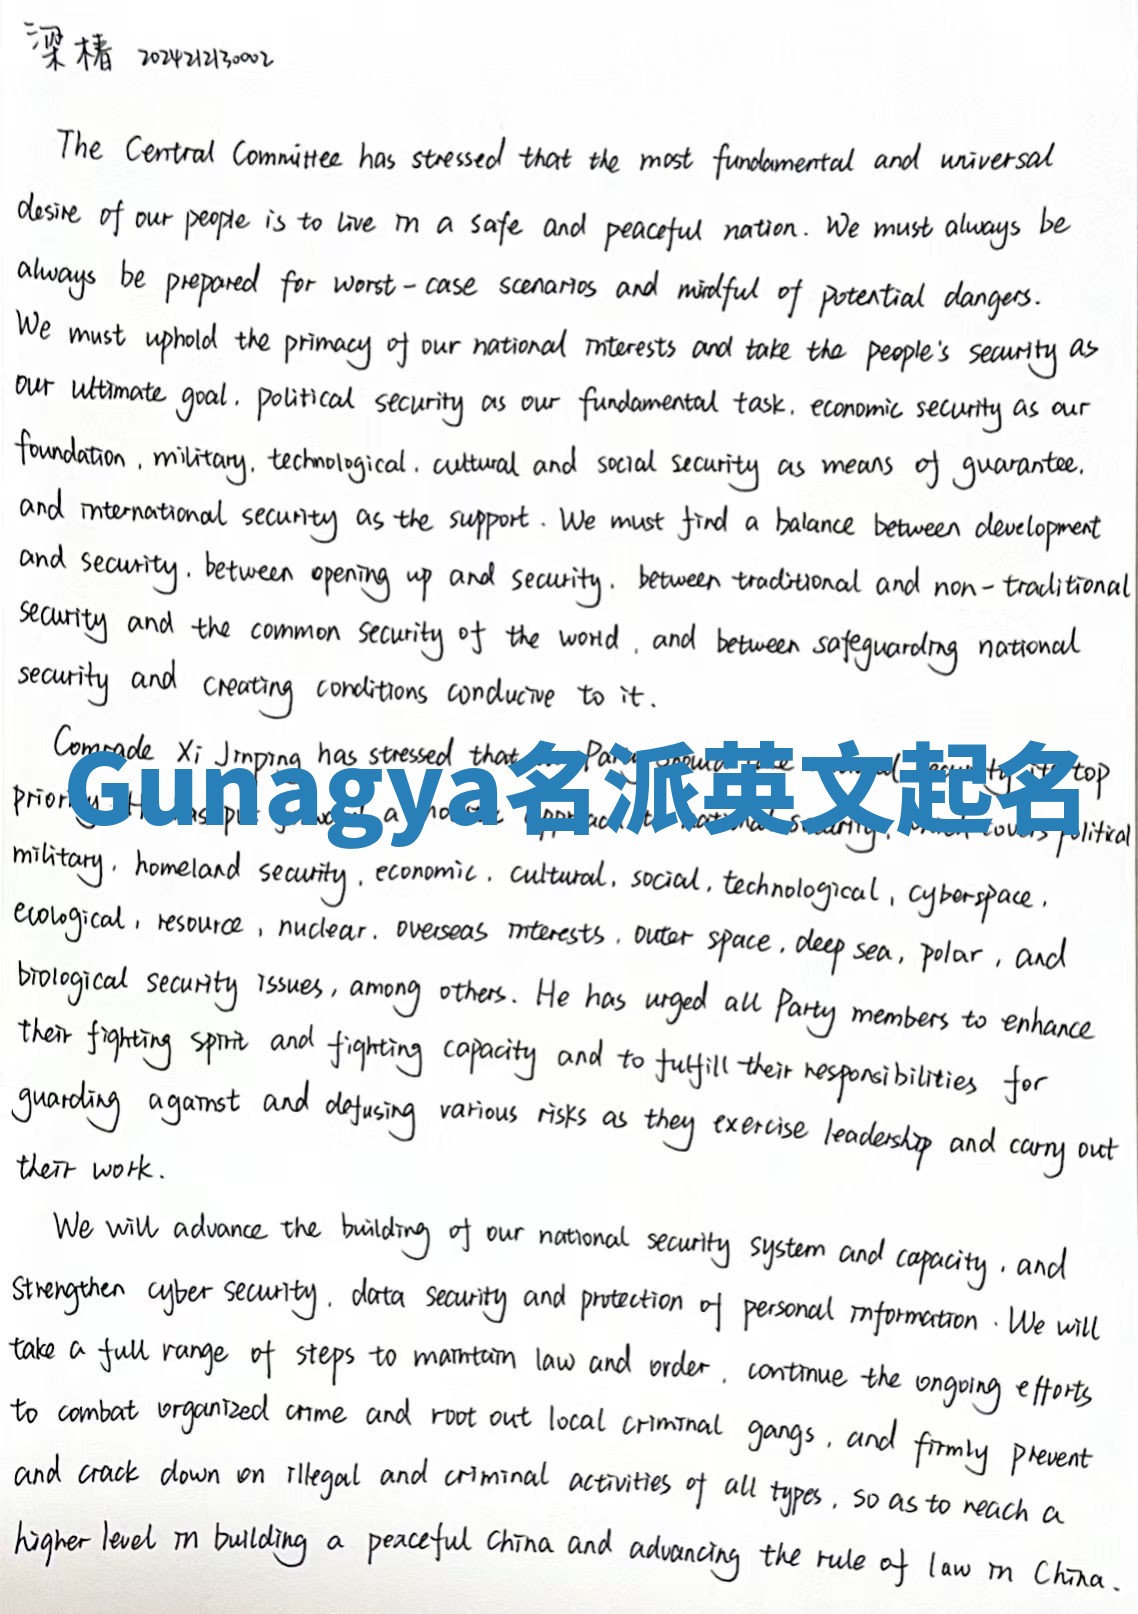 梁椿 2024212130002
The Central Committee has stressed that the most fundamental and universal
desire of our people is to live in a safe and peaceful nation. We must always be
always be prepared for worst-case scenarios and mindful of potential dangers.
We must uphold the primacy of our national interests and take the people's security as
our ultimate goal, political security as our fundamental task, economic security as our
foundation, military, technological, cultural and social security as means of guarantee,
and international security as the support. We must find a balance between development
and security, between opening up and security, between traditional and non-traditional
security and the common security of the world, and between safeguarding national
security and creating conditions conducive to it.
Comrade Xi Jinping has stressed that Party top
Gunagya名派英文起名
a political
military, homeland security, economic, cultural, social, technological, cyberspace,
ecological, resource, nuclear, overseas interests, outer space, deep sea, polar, and
biological security issues, among others. He has urged all Party members to enhance
their fighting spirit and fighting capacity and to fulfill their responsibilities for
guarding against and defusing various risks as they exercise leadership and carry out
their work.
We will advance the building of our national security system and capacity, and
strengthen cyber security, data security and protection of personal information. We will
take a full range of steps to maintain law and order, continue the ongoing efforts
to combat organized crime and root out local criminal gangs, and firmly prevent
and crack down on illegal and criminal activities of all types, so as to reach a
higher level in building a peaceful China and advancing the rule of law in China.